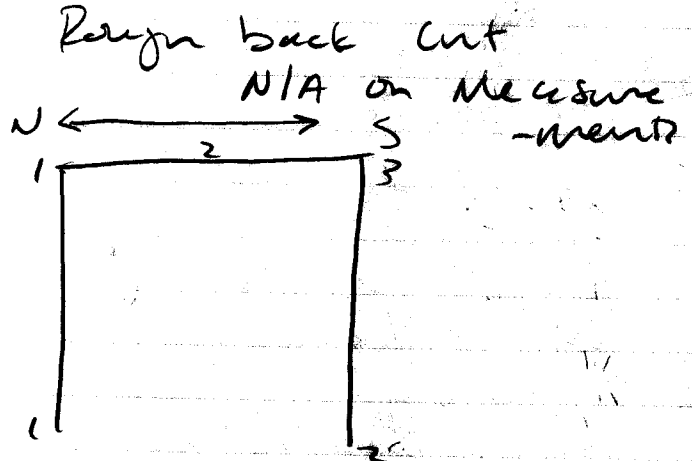 Rough back cut
N/A on Measure
N S -ments
2
1 3
1